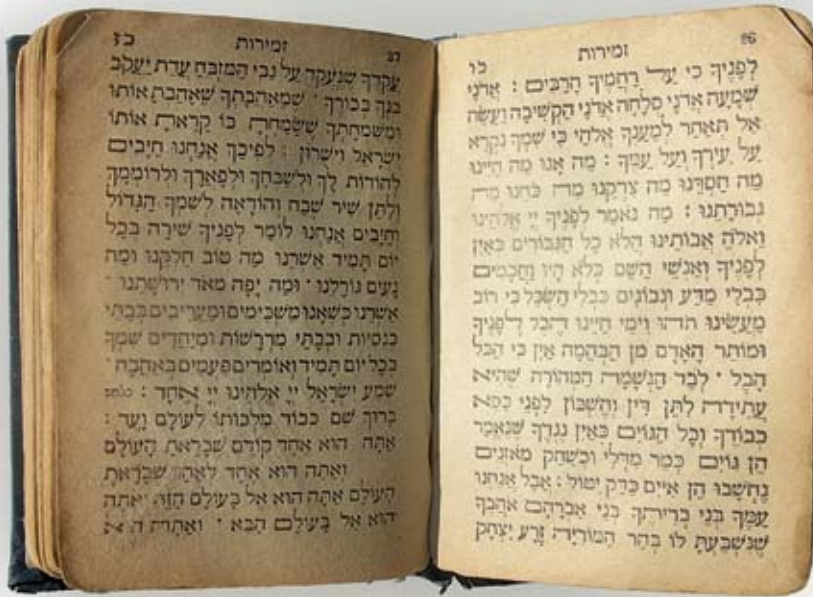 26 זמירות כו
לפניך כי על רחמיך הרבים : אדני
שמעה אדני סלחה אדני הקשיבה ועשה
אל תאחר למענך אלהי כי שמך נקרא
על עירך ועל עמך : מה אנו מה חיינו
מה חסדנו מה צדקנו מה כחנו מה
גבורתנו : מה נאמר לפניך יי אלהינו
ואלהי אבותינו הלא כל הגבורים כאין
לפניך ואנשי השם כלא היו וחכמים
כבלי מדע ונבונים כבלי השכל כי רוב
מעשינו תהו וימי חיינו הבל לפניך
ומותר האדם מן הבהמה אין כי הכל
הבל · לבד הנשמה הטהורה שהיא
עתידה לתן דין וחשבון לפני כסא
כבודך וכל הגוים כאין נגדך שנאמר
הן גוים כמר מדלי וכשחק מאזנים
נחשבו הן איים כדק יטול : אבל אנחנו
עמך בני בריתך בני אברהם אהבך
שנשבעת לו בהר המוריה זרע יצחק
27 זמירות כז
עקדך שנעקד על גבי המזבח עדת יעקב
בנך בכורך · שמאהבתך שאהבת אותו
ומשמחתך ששמחת בו קראת אותו
ישראל וישרון : לפיכך אנחנו חיבים
להודות לך ולשבחך ולפארך ולרוממך
ולתן שיר שבח והודאה לשמך הגדול
וחיבים אנחנו לומר לפניך שירה בכל
יום תמיד אשרנו מה טוב חלקנו ומה
נעים גורלנו · ומה יפה מאד ירושתנו
אשרנו כשאנו משכימים ומעריבים בבתי
כנסיות ובבתי מדרשות ומיחדים שמך
בכל יום תמיד ואומרים פעמים באהבה ·
שמע ישראל יי אלהינו יי אחד :
ברוך שם כבוד מלכותו לעולם ועד :
אתה הוא אחד קודם שבראת העולם
ואתה הוא אחד לאחר שבראת
העולם אתה הוא אל בעולם הזה ואתה
הוא אל בעולם הבא · ואתה הוא